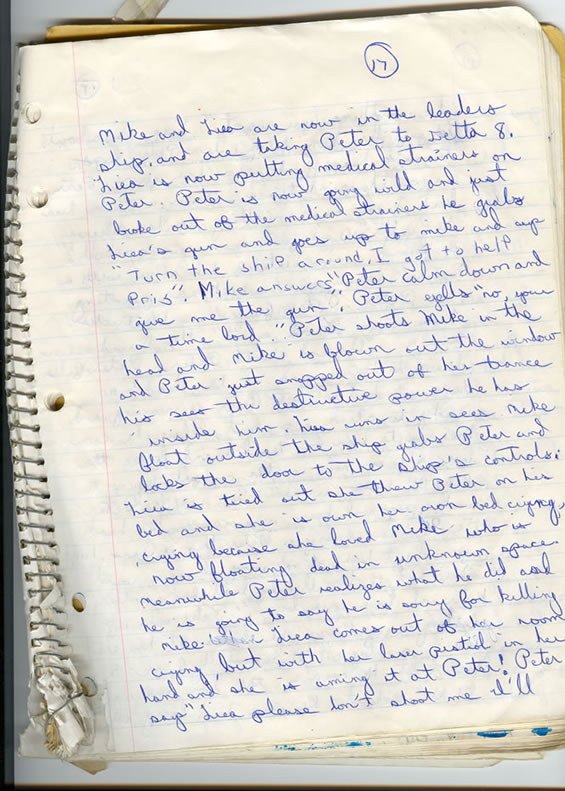 17
Mike and Liea are now in the leaders
ship, and are taking Peter to Zetta 8.
Liea is now putting medical strainers on
Peter. Peter is now going wild and just
broke out of the medical strainers he grabs
Liea's gun and goes up to mike and says
"Turn the ship around, I got to help
Pris". Mike answers "Peter calm down and
give me the gun". Peter eyells "no, your
a time lord." Peter shoots Mike in the
head and Mike is blown out the window
and Peter just snapped out of her trance
his sees the destructive power he has
inside him. Liea runs in sees Mike
float outside the ship grabs Peter and
locks the door to the ship's controls.
Liea is tied out she thew Peter on his
bed and she is own her own bed crying,
crying because she loved Mike who is
now floating dead in unknown space.
Meanwhile Peter realizes what he did and
he is going to say he is sorry for killing
mike. Liea comes out of her room
crying, but with her laser pistid in her
hand and she is aming it at Peter! Peter
say "Liea please don't shoot me I'll